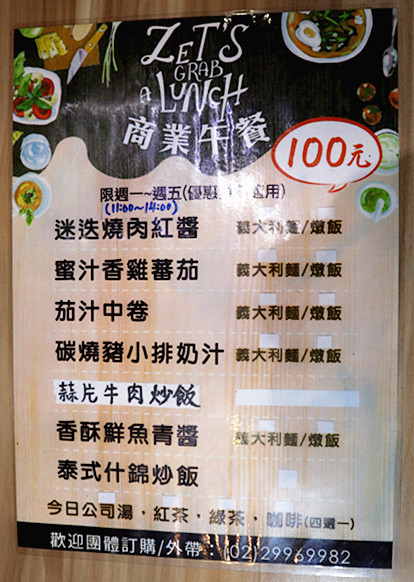 LET'S
GRAB
A LUNCH
商業午餐
100元
限週一~週五(優惠 用)
(11:00~14:00)
迷迭燒肉紅醬 義大利麵/燉飯
蜜汁香雞蕃茄 義大利麵/燉飯
茄汁中卷 義大利麵/燉飯
碳燒豬小排奶汁 義大利麵/燉飯
蒜片牛肉炒飯
香酥鮮魚青醬 義大利麵/燉飯
泰式什錦炒飯
今日公司湯,紅茶,綠茶,咖啡(四選一)
歡迎團體訂購/外帶:(02)29969982